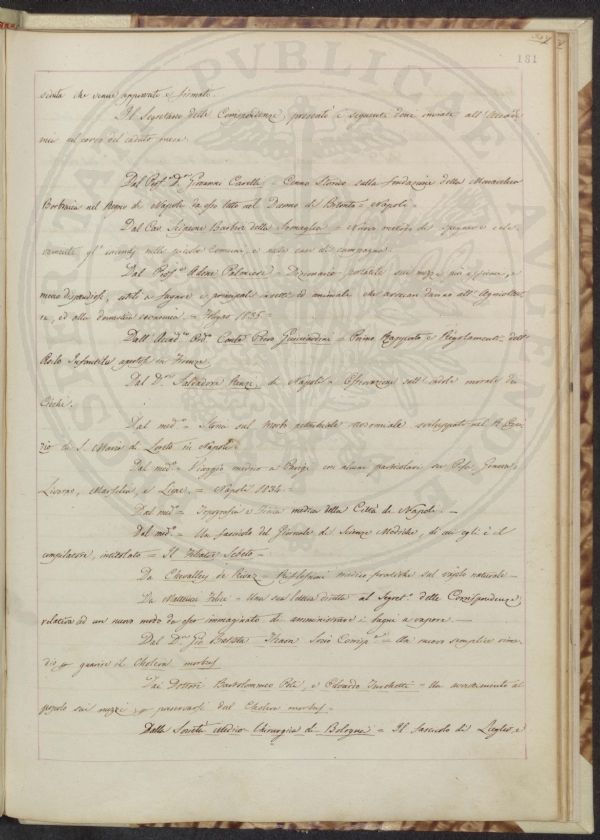 181
duta che venne approvato e firmato.
Il Segretario delle Corrispondenze presentò i seguenti doni inviati all' Accade
mia nel corso del caduto mese.
Dal Prof. D. Giovanni Carelli = Cenno Storico sulla fondazione della Monarchia
nel Regno di Napoli da esso letto nel Duomo di Bitonto = Napoli -
Dal Cav. Sigismo Barbier della = Nuovo metodo di spegnere
gl' incendj nelle piccole Comuni, e nelle case di campagna.
Dal Prof. Adone Palmieri = Dizionario portatile sui mezzi più,
meno dispendiosi, utili a fugare i principali insetti ed animali che arrecan danno all' Agricoltu-
ra, ed alla domestica economia = 1835 -
Dall' Acad. Ord. Conte Piero Guicciardini = Primo Rapporto e Regolamenti dell'
Asilo Infantile aperto in Firenze.
Dal D. Salvadore Renzi di Napoli = Osservazioni sull' indole morale dei
Ciechi.
Dal med. = Storia sul morbo sviluppato nel R. Ospi
zio di S. Maria di Loreto in Napoli.
Dal med. = Viaggio medico a Parigi con alcuni particolari su Pisa, Genova,
Livorno, Marsiglia, e Lione. = Napoli 1834.
Dal med. = Topografia e medica della Città di Napoli. -
Dal med. = Un fascicolo del Giornale di Scienze Mediche, di cui egli è il
compilatore, intitolato = Il Filiatre Sebezio -
Da Chevalley de Rivaz = Riflessioni medico pratiche sul vajolo naturale -
Da Matteucci Felice = Una sua lettera diretta al Segret. delle Corrispondenze
relativa ad un nuovo modo da esso immaginato di amministrare i bagni a vapore. -
Dal D. Gio. Batista Socio Corrisp. = Un nuovo semplice rime
dio per guarire il Cholera morbus
Dai Dottori Bartolommeo Poli, e Odoardo Turchetti = Un avvertimento al
popolo sui mezzi per preservarsi dal Cholera morbus.
Dalla Società Medico-Chirurgica di Bologna = Il fascicolo di Luglio, e